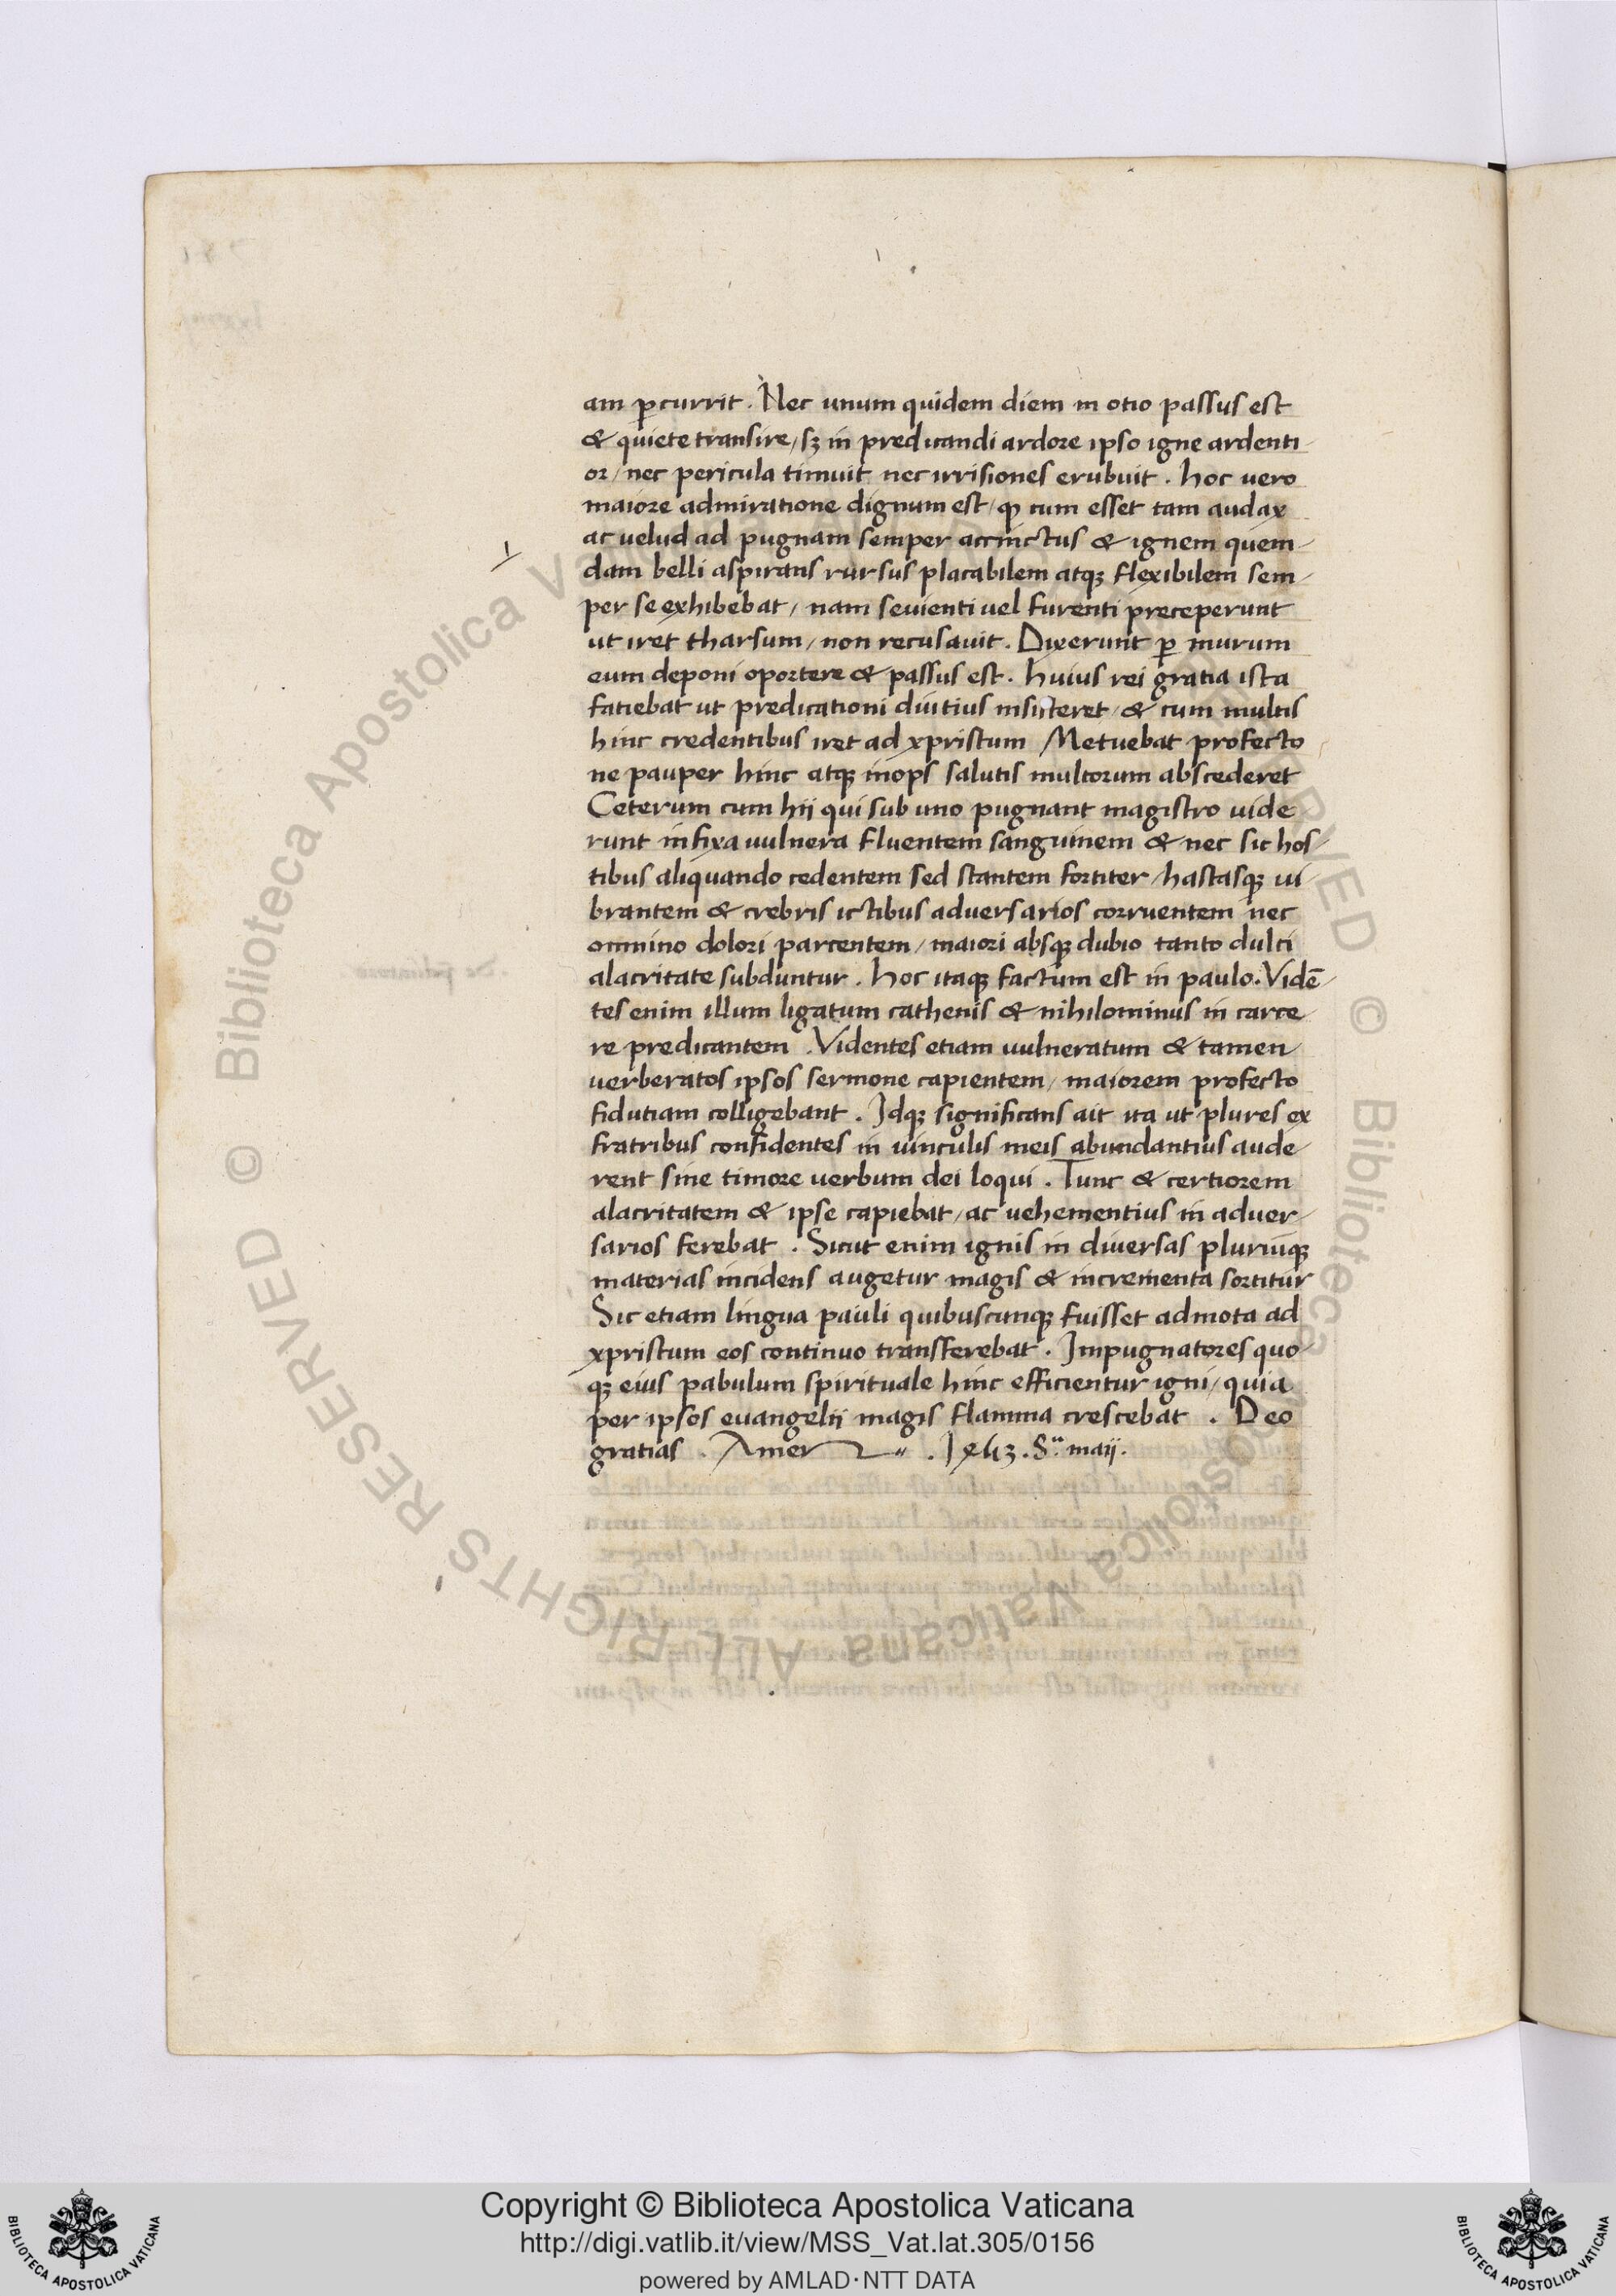 am ꝑcurrit. Nec unum quidem diem in otio passus est
& quiete transire/ sꝫ in predicandi ardore ipso igne ardenti
or/ nec pericula timuit nec irrisiones erubuit. hoc vero
maiore admiratione dignum est/ ꝙ cum esset tam audax
ac uelud ad pugnam semper accinctus & ignem quem-
dam belli aspirans rursus placabilem atqꝫ flexibilem sem-
per se exhibebat/ nam seuienti uel furenti preceperunt
ut iret tharsum/ non recusauit. Dixerunt ꝑ murum
eum deponi oportere & passus est. huius rei gratia ista
faciebat ut predicationi diutius insisteret/ & cum multis
hinc credentibus iret ad xpristum Metuebat profecto
ne pauper hinc atqꝫ inops salutis multorum abscederet
Ceterum cum hii qui sub uno pugnant magistro uide
runt infixa uulnera fluentem sanguinem & nec sic hos-
tibus aliquando cedentem sed stantem fortiter/ hastasqꝫ ui-
brantem & crebris ictibus aduersarios corruentem nec
omnino dolori parcentem/ maiori absqꝫ dubio tanto dulci
alacritate subduntur. hoc itaqꝫ factum est in paulo. Vidē-
tes enim illum ligatum cathenis & nihilominus in carce
re predicantem. Videntes etiam uulneratum & tamen
uerberatos ipsos sermone capientem/ maiorem profecto
fidutiam colligebant. Idqꝫ significans ait ita ut plures ex
fratribus confidentes in uinculis meis abundantius aude
rent sine timore uerbum dei loqui. Tunc & certiorem
alacritatem & ipse capiebat/ ac uehementius in aduer-
sarios ferebat. Sicut enim ignis in diuersas
materias incidens augetur magis & incrementa sortitur
Sic etiam lingua pauli quibuscunqꝫ fuisset admota ad
xpristum eos continuo transferebat. Impugnatores quo-
qꝫ eius pabulum spirituale hinc efficientur igni/ quia
per ipsos euangelii magis flamma crescebat. Deo
gratias. Amen maij.
© Biblioteca Apostolica Vaticana ALL RIGHTS RESERVED
Copyright © Biblioteca Apostolica Vaticana
http://digi.vatlib.it/view/MSS_Vat.lat.305/0156
powered by AMLAD·NTT DATA
BIBLIOTECA APOSTOLICA VATICANA
BIBLIOTECA APOSTOLICA VATICANA